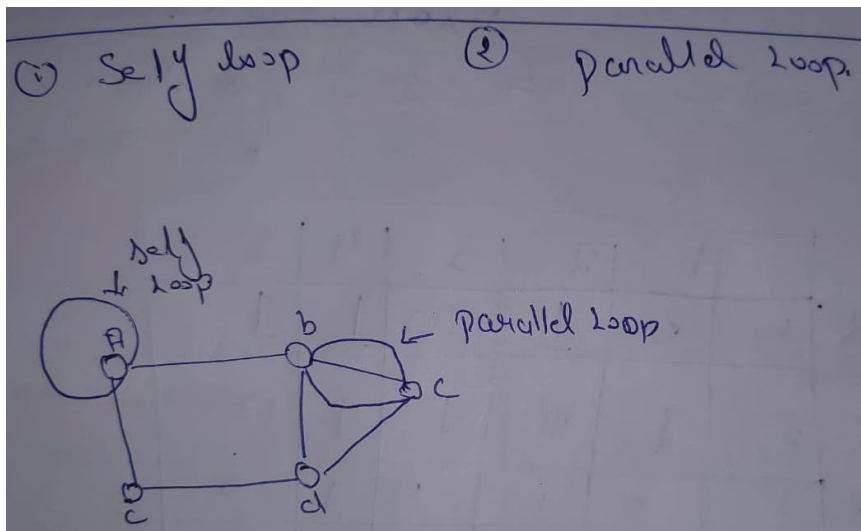 ① Self loop ② Parallel Loop.
self
Loop
A
b
Parallel Loop.
c
c
d